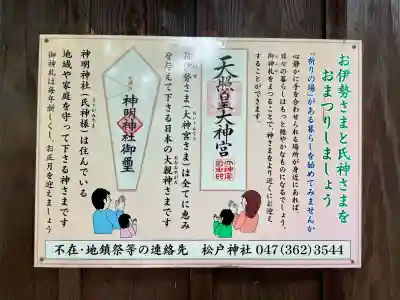 お伊勢さまと氏神さまを
おまつりしましょう
「祈りの場」がある暮らしを始めてみませんか
心静かに手を合わせられる場所が身近にあれば、
日々の暮らしはもっと穏やかなものになるでしょう。
御神札をまつることで、神さまをより近くにお迎え
することができます。
天照皇大神宮
お伊勢さま(大神宮さま)は全てに恵み
を与えて下さる日本の大親神さまです
神明神社御璽
神明神社(氏神様)は住んでいる
地域や家庭を守って下さる神さまです
御神札は毎年新しくし、お正月を迎えましょう
不在・地鎮祭等の連絡先 松戸神社 047(362)3544